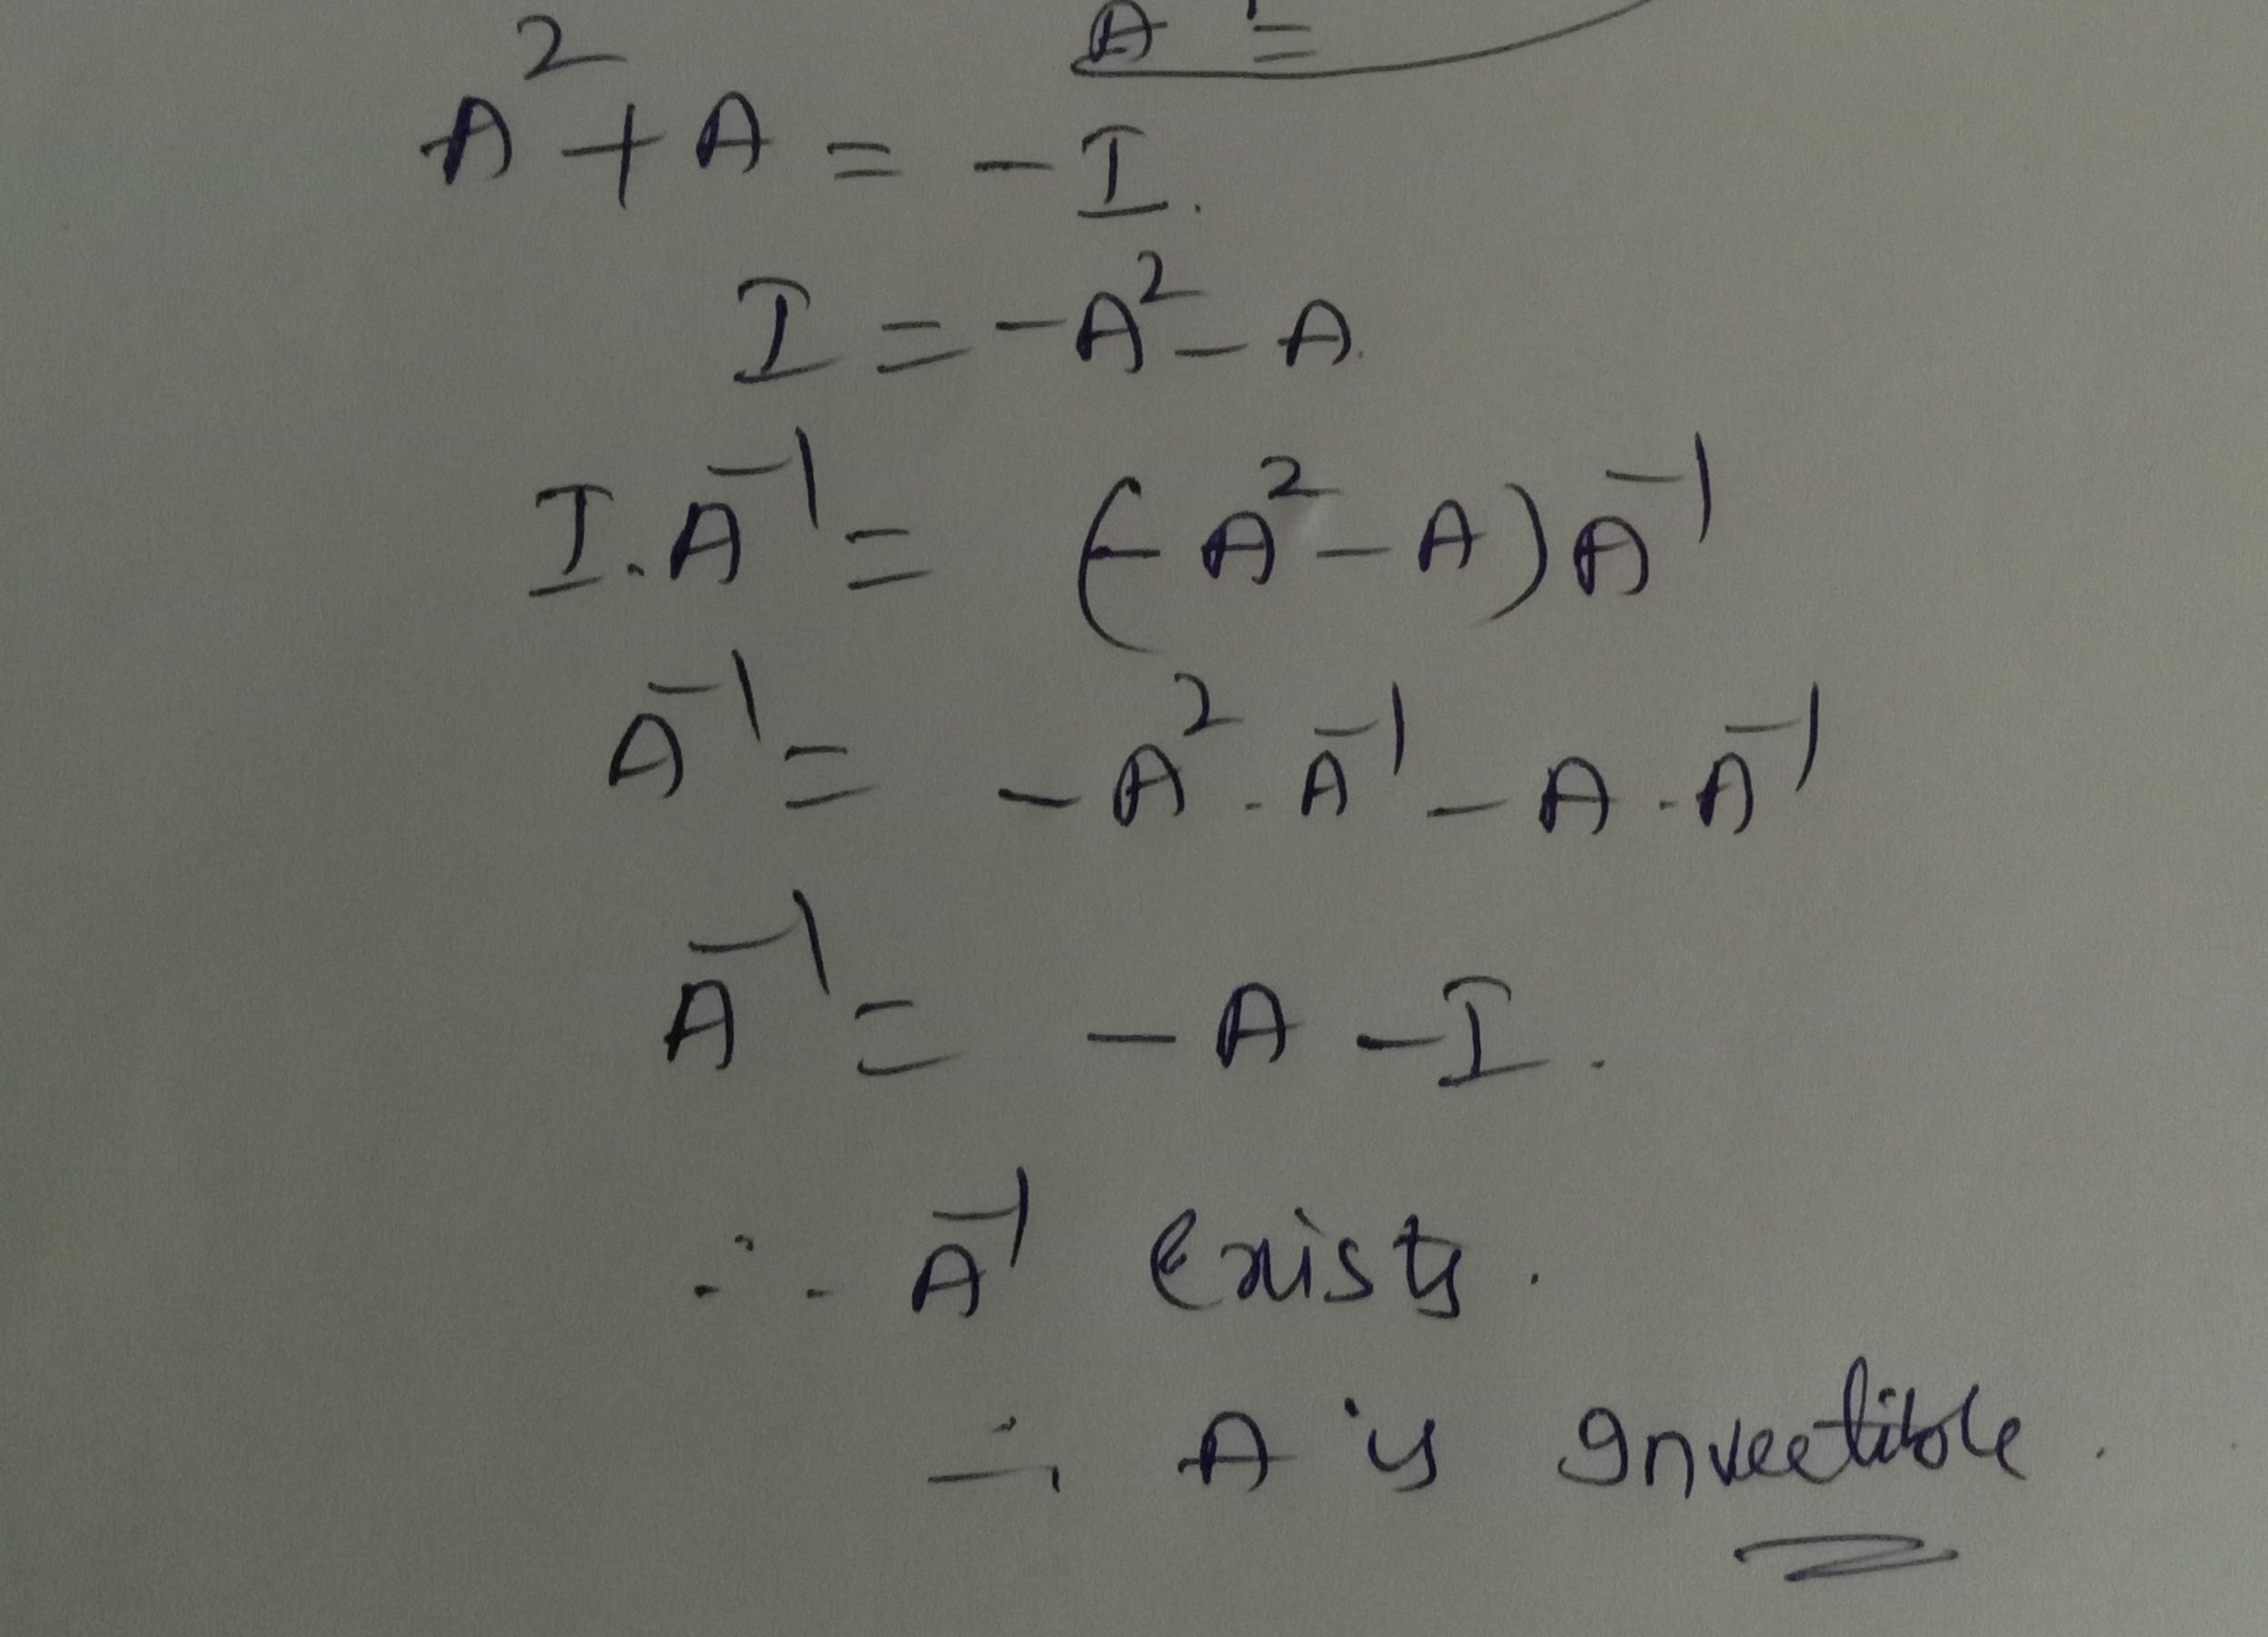 A⁻¹ =
A² + A = - I.
I = - A² - A.
I . A⁻¹ = (- A² - A) A⁻¹
A⁻¹ = - A² . A⁻¹ - A . A⁻¹
A⁻¹ = - A - I .
∴ A⁻¹ exists .
∴ A is Invertible .